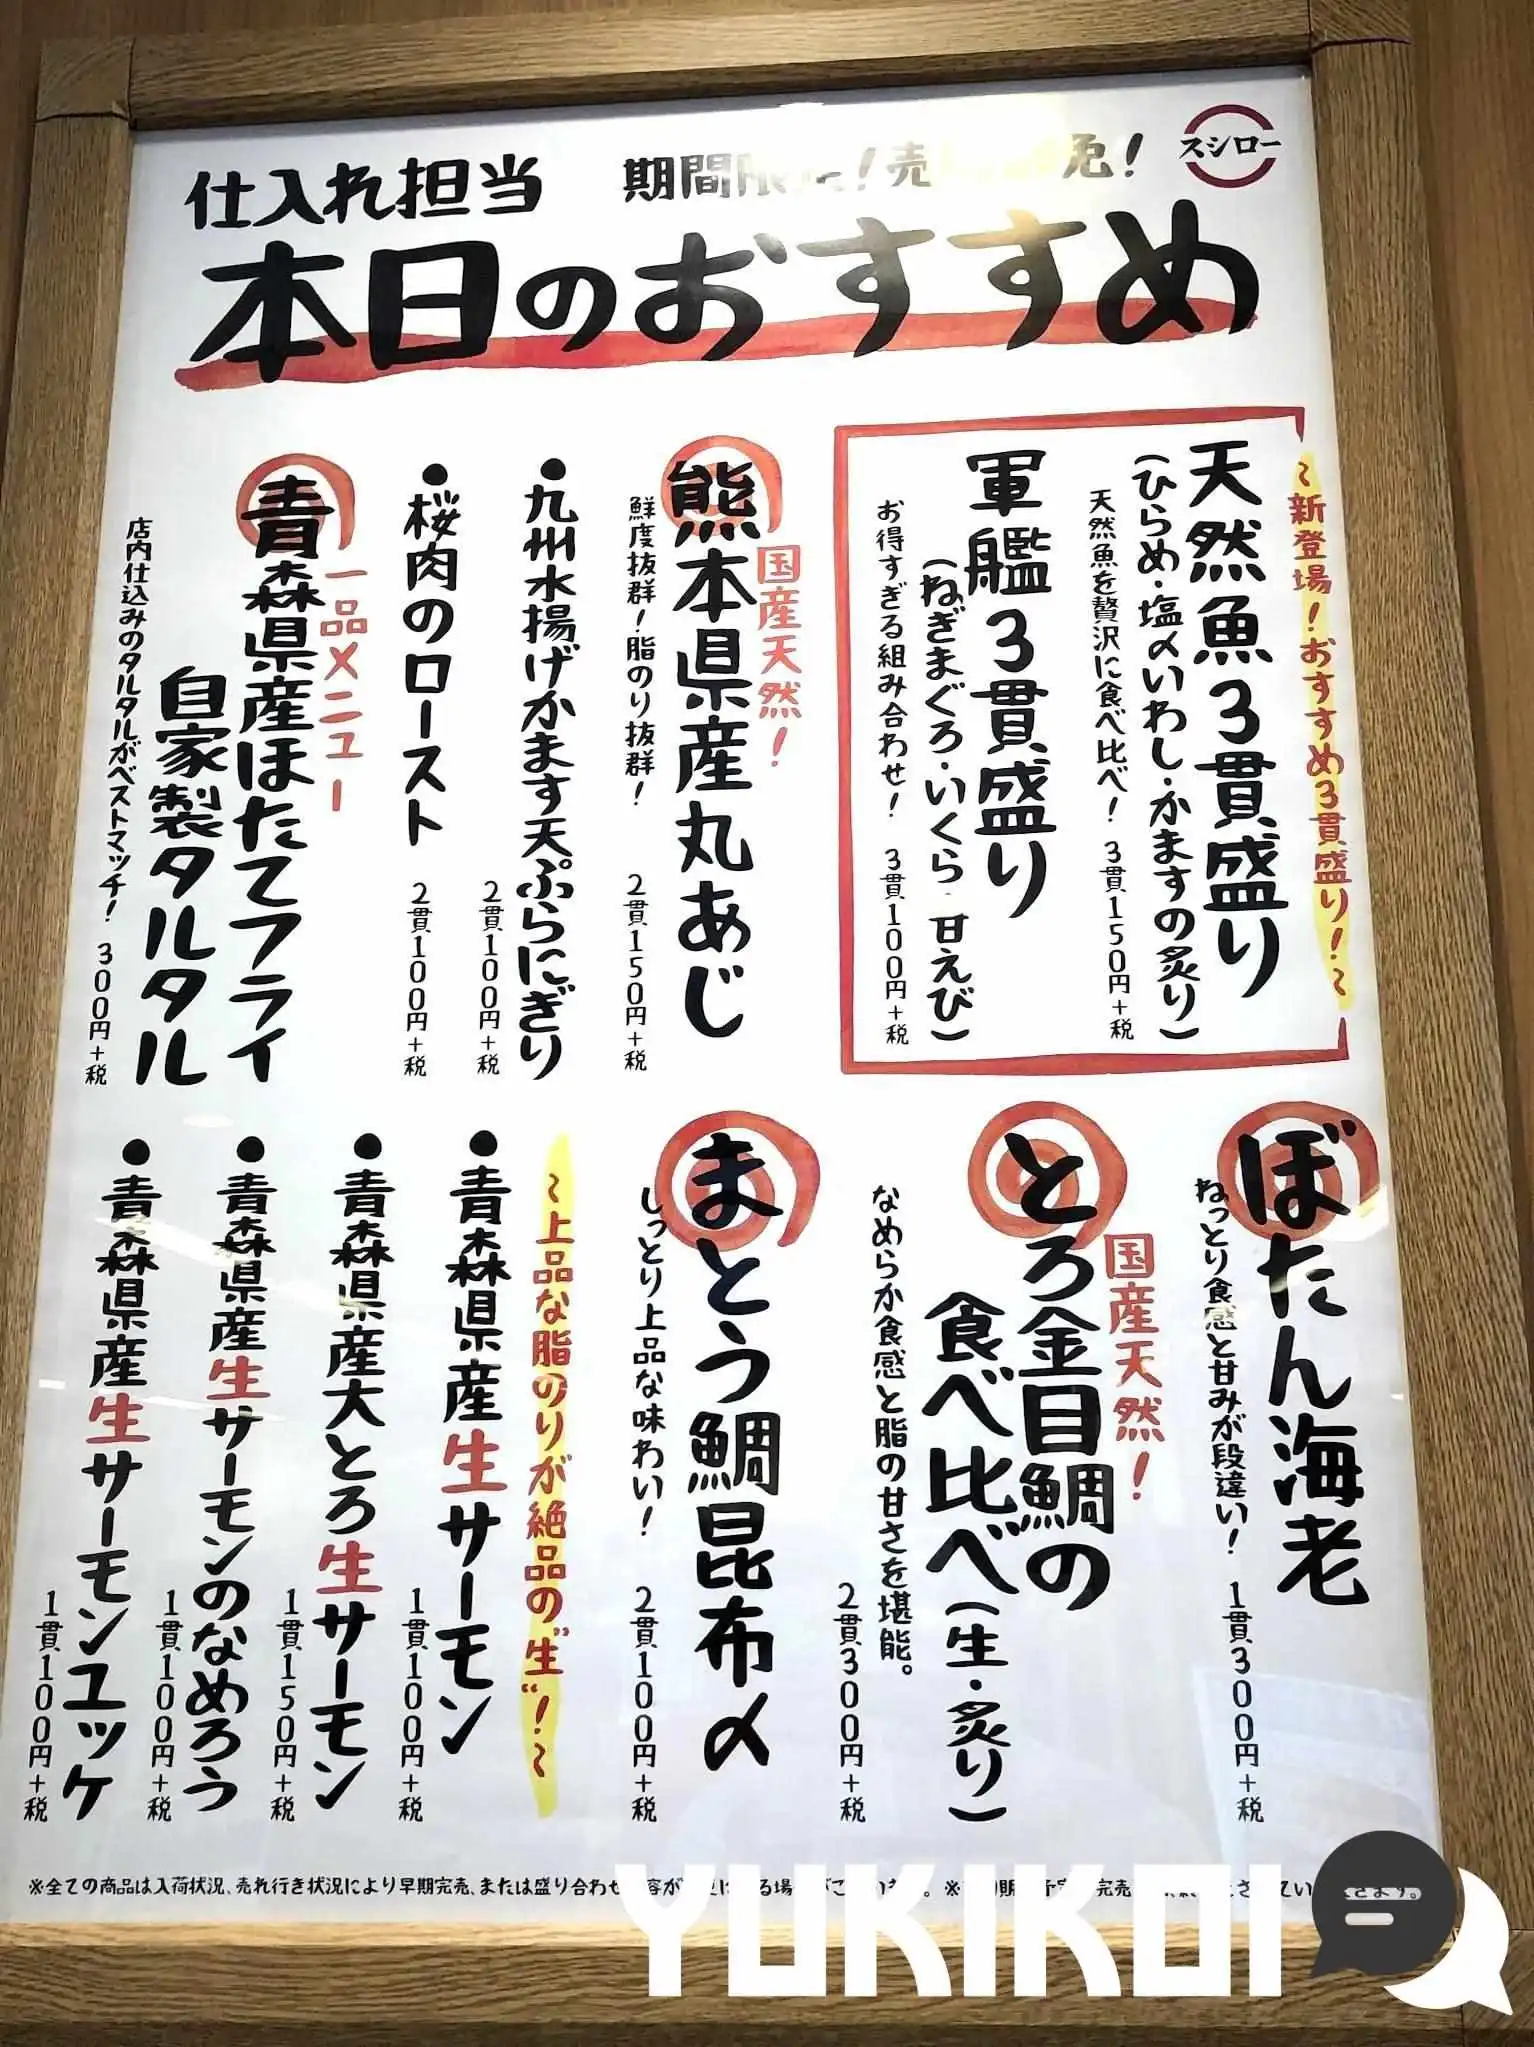 仕入れ担当
期間限定!売
免!
スシロー
本日のおすすめ
~新登場!おすすめ3貫盛り!~
天然魚3貫盛り
(ひらめ・塩〆いわし・かますの炙り)
天然魚を贅沢に食べ比べ! 3貫150円+税
軍艦3貫盛り
(ねぎまぐろ・いくら・甘えび)
お得すぎる組み合わせ! 3貫100円+税
国産天然!
熊本県産丸あじ
鮮度抜群!脂のり抜群! 2貫150円+税
●九州水揚げかます天ぷらにぎり
2貫100円+税
●桜肉のロースト
2貫100円+税
一品メニュー
青森県産ほたてフライ
自家製タルタル
店内仕込みのタルタルがベストマッチ! 300円+税
ぼたん海老
ねっとり食感と甘みが段違い! 1貫300円+税
国産天然!
とろ金目鯛の
食べ比べ(生・炙り)
なめらか食感と脂の甘さを堪能。
2貫300円+税
まとう鯛昆布〆
しっとり上品な味わい! 2貫100円+税
~上品な脂のりが絶品の"生"!~
●青森県産生サーモン
1貫100円+税
●青森県産大とろ生サーモン
1貫150円+税
●青森県産生サーモンのなめろう
1貫100円+税
●青森県産生サーモンユッケ
1貫100円+税
※全ての商品は入荷状況、売れ行き状況により早期完売、または盛り合わせ
YUKIKOI